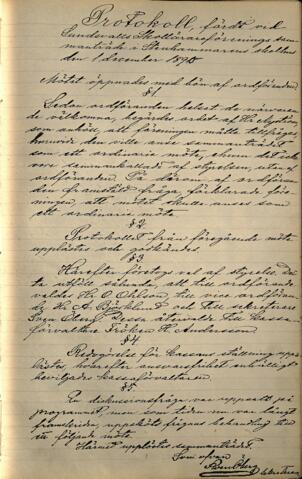 Protokoll, fördt vid
Sundsvalls Skollärareförenings sam-
manträde i Stenhammarens skolhus
den 1 december 1890
Mötet öppnades med bön af ordföranden.
§ 1
Sedan ordföranden helsat de närvaran-
de välkomna, begärdes ordet af Hr Nyström,
som anhöll, att föreningen måtte tillfrågas
huruvida den ville anse sammanträdet
som ett ordinarie möte, ehuru det icke
vore sammankalladt af styrelsen, utan af
ordföranden. På derom af ordföran-
den framstäld fråga, förklarade före-
ningen, att mötet skulle anses som
ett ordinarie möte.
§ 2
Protokollet från föregående möte
upplästes och godkändes.
§ 3
Härefter företogs val af styrelse. Det-
ta utföll sålunda, att till ordförande
valdes Hr O. Ohlson, till vice ordföran-
de Hr A. Björklund och till sekreterare
Sven Öberg. Till kassa-
förvaltare Fröken H. Andersson.
§ 4
Redogörelse för kassans ställning upp-
lästes, hvarefter ansvarsfrihet enhälligt
beviljades kassaförvaltaren.
§ 5
En diskussionsfråga var uppsatt på
programmet men som tiden var långt
framskriden, uppsköts frågans behandling till
följande möte.
Härmed upplöstes sammanträdet.
Som ofvan
Sven Öberg
sekreterare